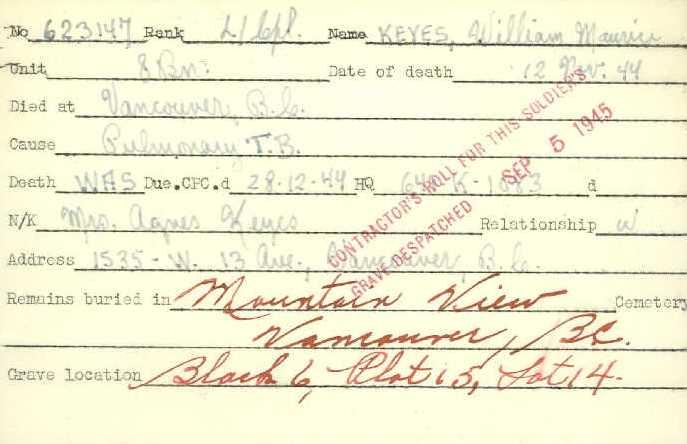 No 623147 Rank L/Cpl. Name KEYES, William Maurice
Unit 8 Bn. Date of death 12 Nov. 44
Died at Vancouver, B.C.
Cause Pulmonary T.B.
Death WAS Due.CPC.d 28-12-44 HQ 649-K-1083 d
N/K Mrs. Agnes Keyes Relationship W
Address 1535-W. 13 Ave., Vancouver, B.C.
CONTRACTOR'S ROLL FOR THIS SOLDIER'S
GRAVE DESPATCHED SEP 5 1945
Remains buried in Mountain View Cemetery
Vancouver, BC.
Grave location Block 6, Plot 15, Lot 14.